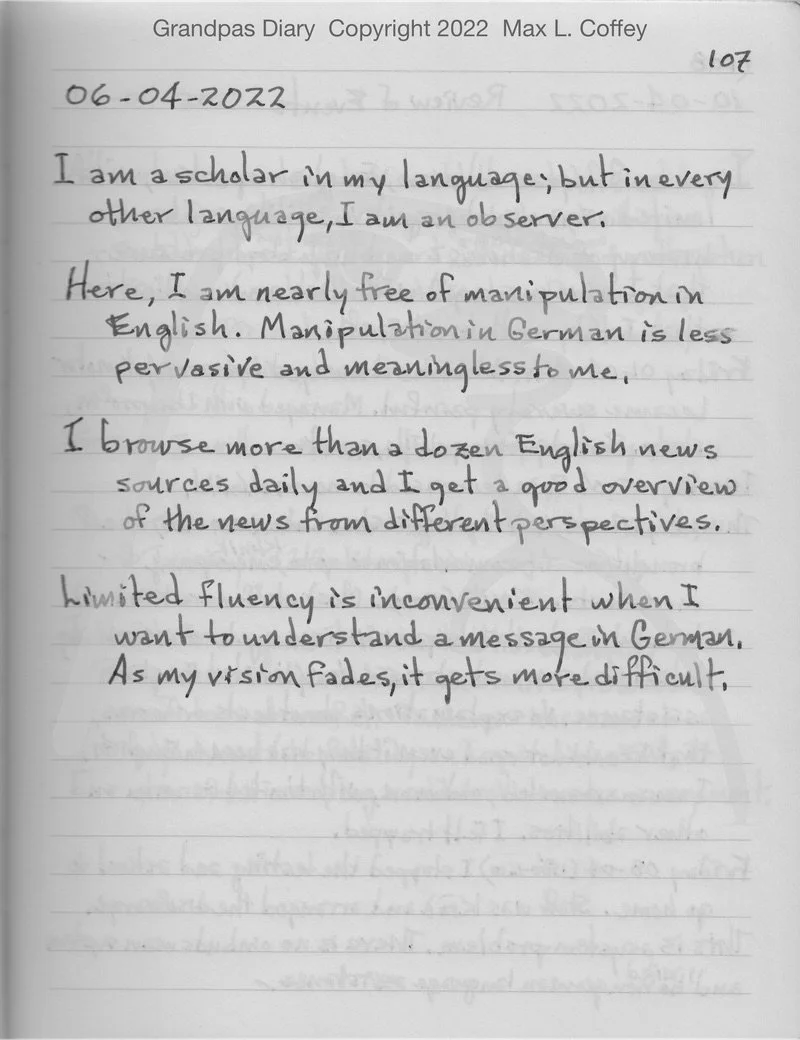 Grandpas Diary Copyright 2022 Max L. Coffey
107
06-04-2022
I am a scholar in my language; but in every
other language, I am an observer.
Here, I am nearly free of manipulation in
English. Manipulation in German is less
pervasive and meaningless to me.
I browse more than a dozen English news
sources daily and I get a good overview
of the news from different perspectives.
Limited fluency is inconvenient when I
want to understand a message in German.
As my vision fades, it gets more difficult.